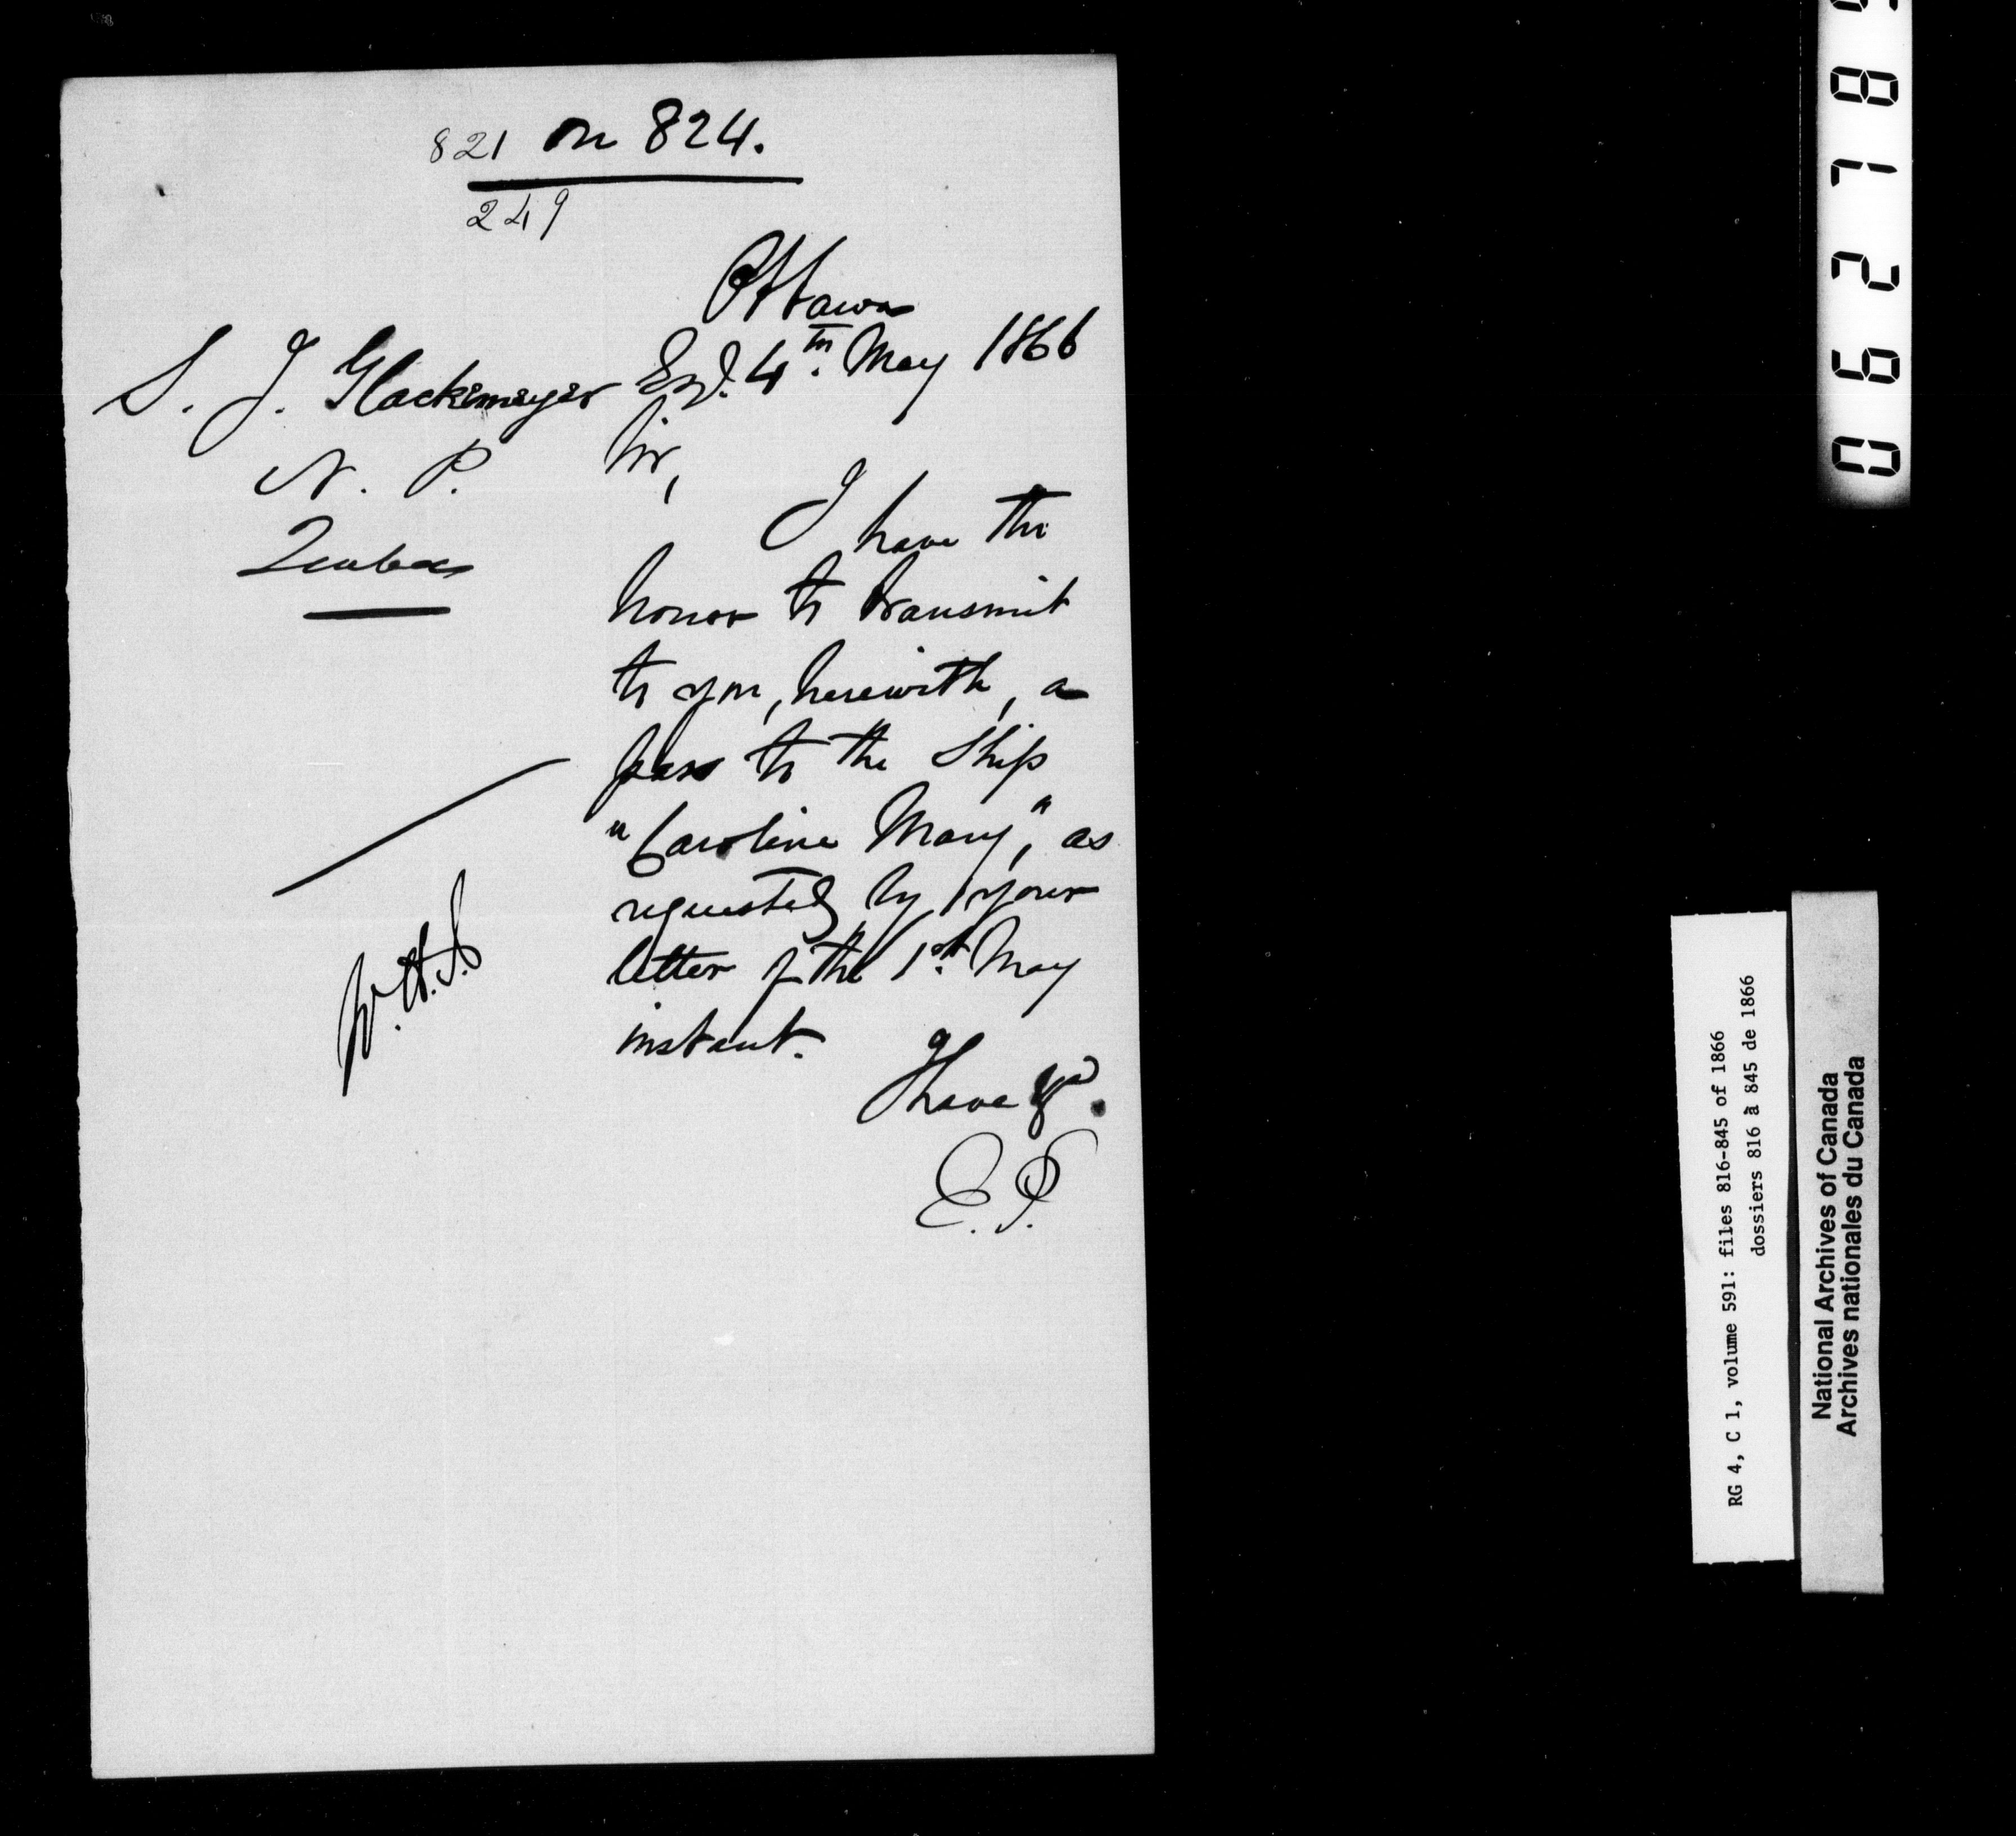 821 on 824.
249
Ottawa
4th. May 1866
S. J. Glackemeyer Esq.
N. P.
Quebec
Sir,
I have the
honor to transmit
to you, herewith, a
pass to the Ship
"Caroline Mary", as
requested by your
letter of the 1st. May
instant.
I have &c.
E. P.
RG 4, C 1, volume 591: files 816-845 of 1866
dossiers 816 à 845 de 1866
National Archives of Canada
Archives nationales du Canada